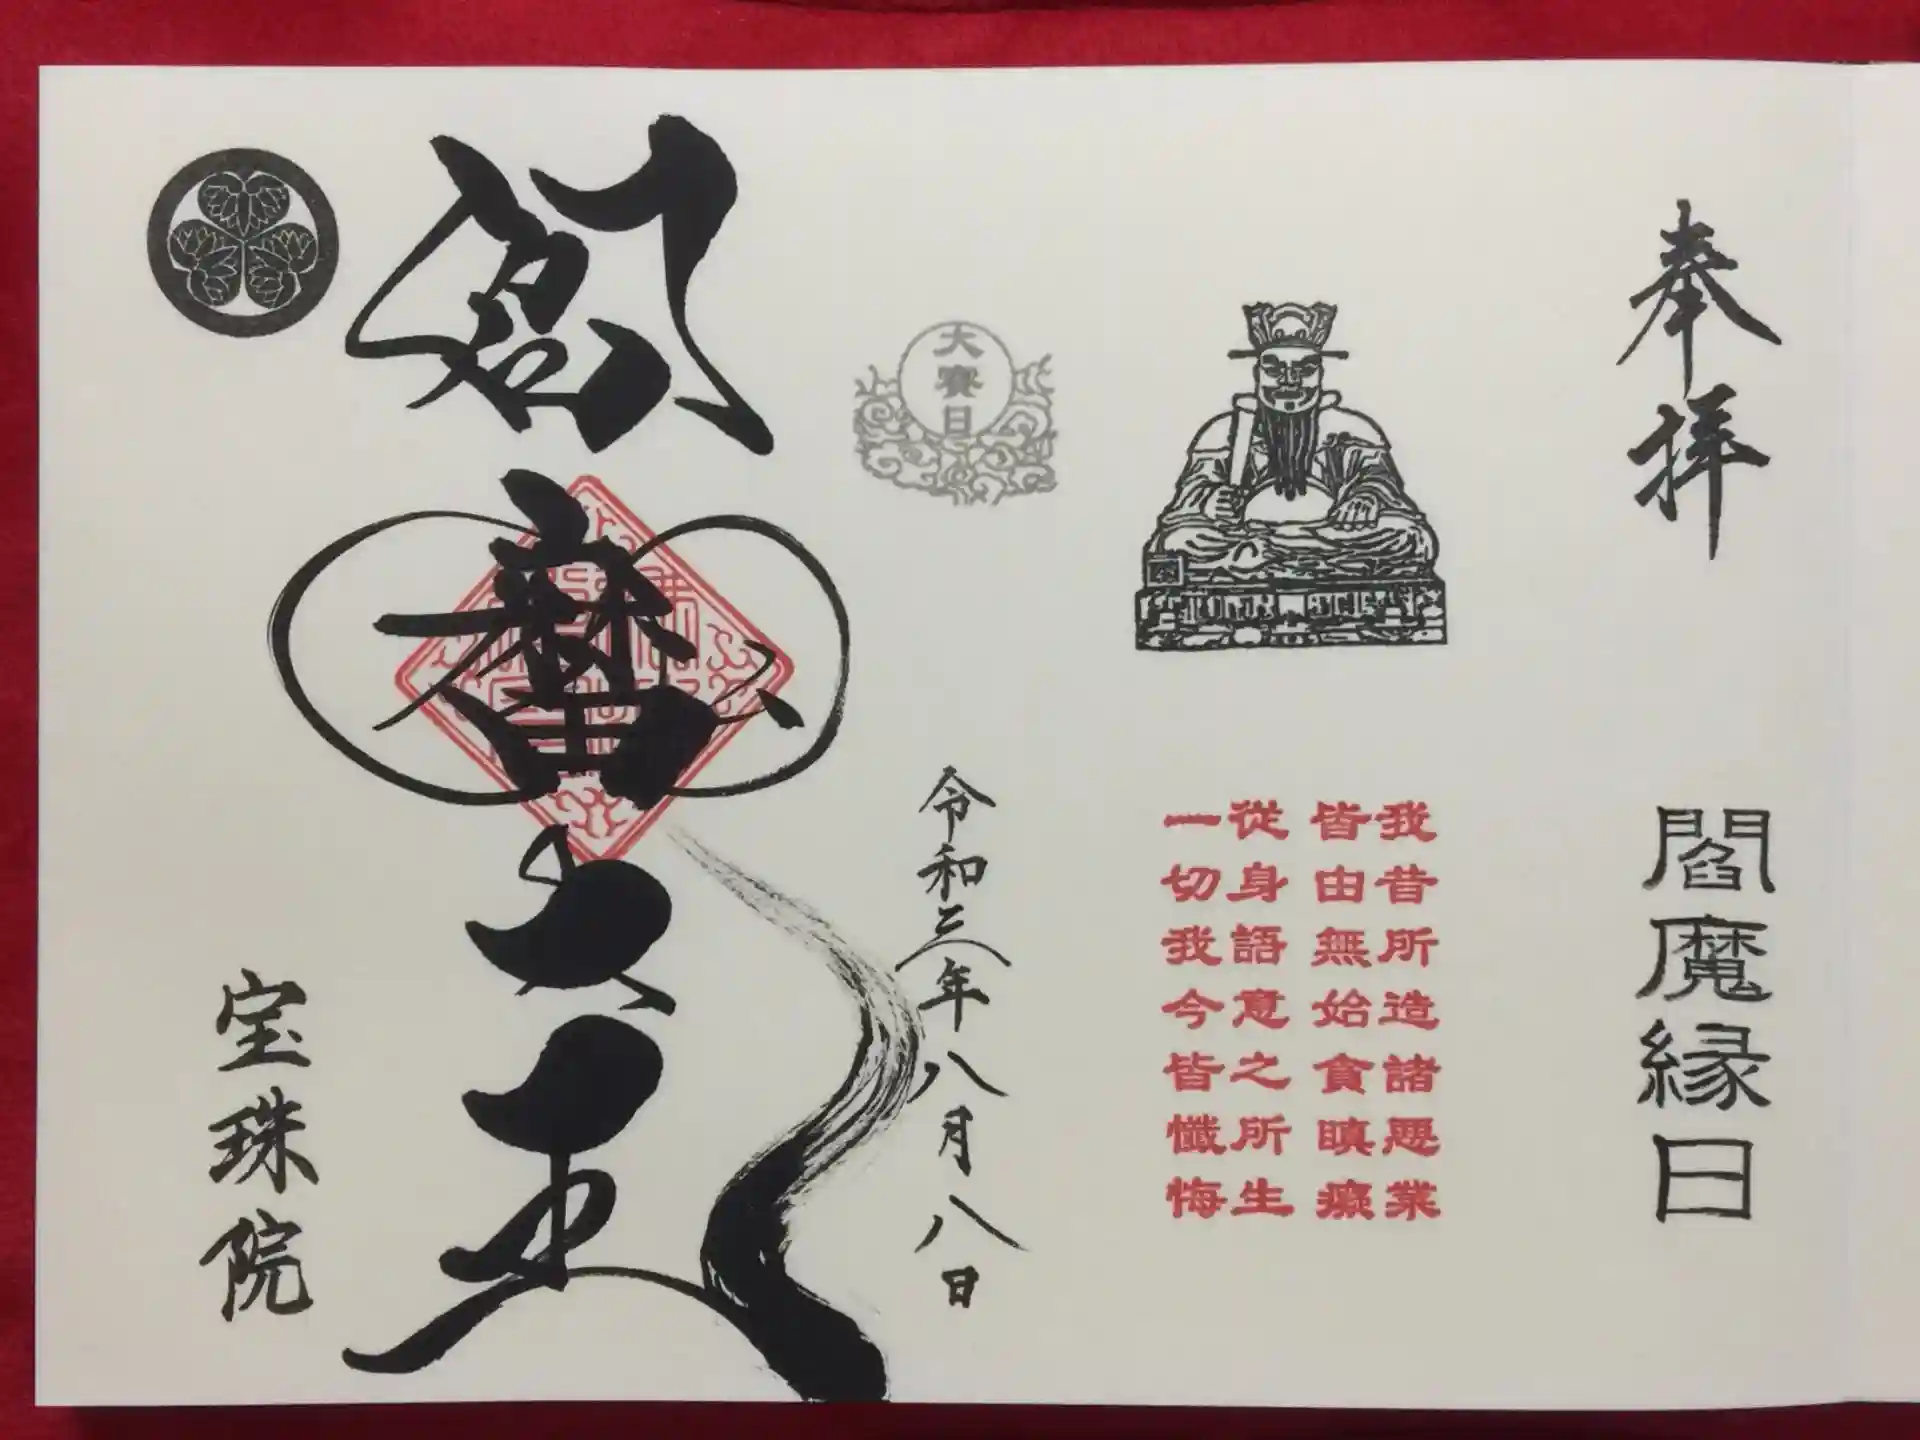 奉拝
閻魔縁日
我昔所造諸悪業
皆由無始貪瞋癡
従身語意之所生
一切我今皆懺悔
大賽日
令和三年八月八日
閻魔大王
宝珠院